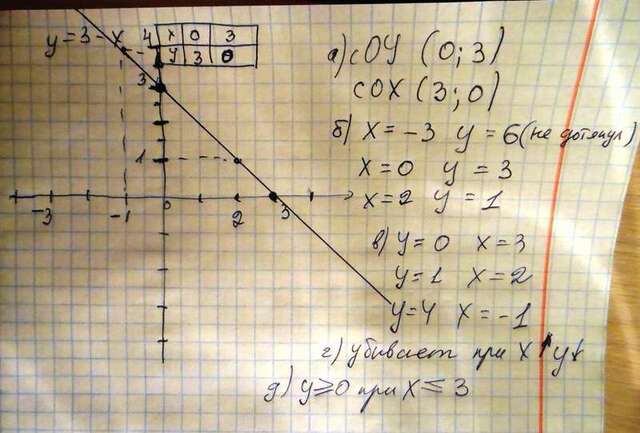 y = 3 - x
x 0 3
y 3 0
4
3
1
-3 -1 0 2 3
а) с OY (0; 3)
с OX (3; 0)
б) x = -3 y = 6 (не дотянул)
x = 0 y = 3
x = 2 y = 1
в) y = 0 x = 3
y = 1 x = 2
y = 4 x = -1
г) убывает при x ↑ y ↓
д) y ⩾ 0 при x ≤ 3